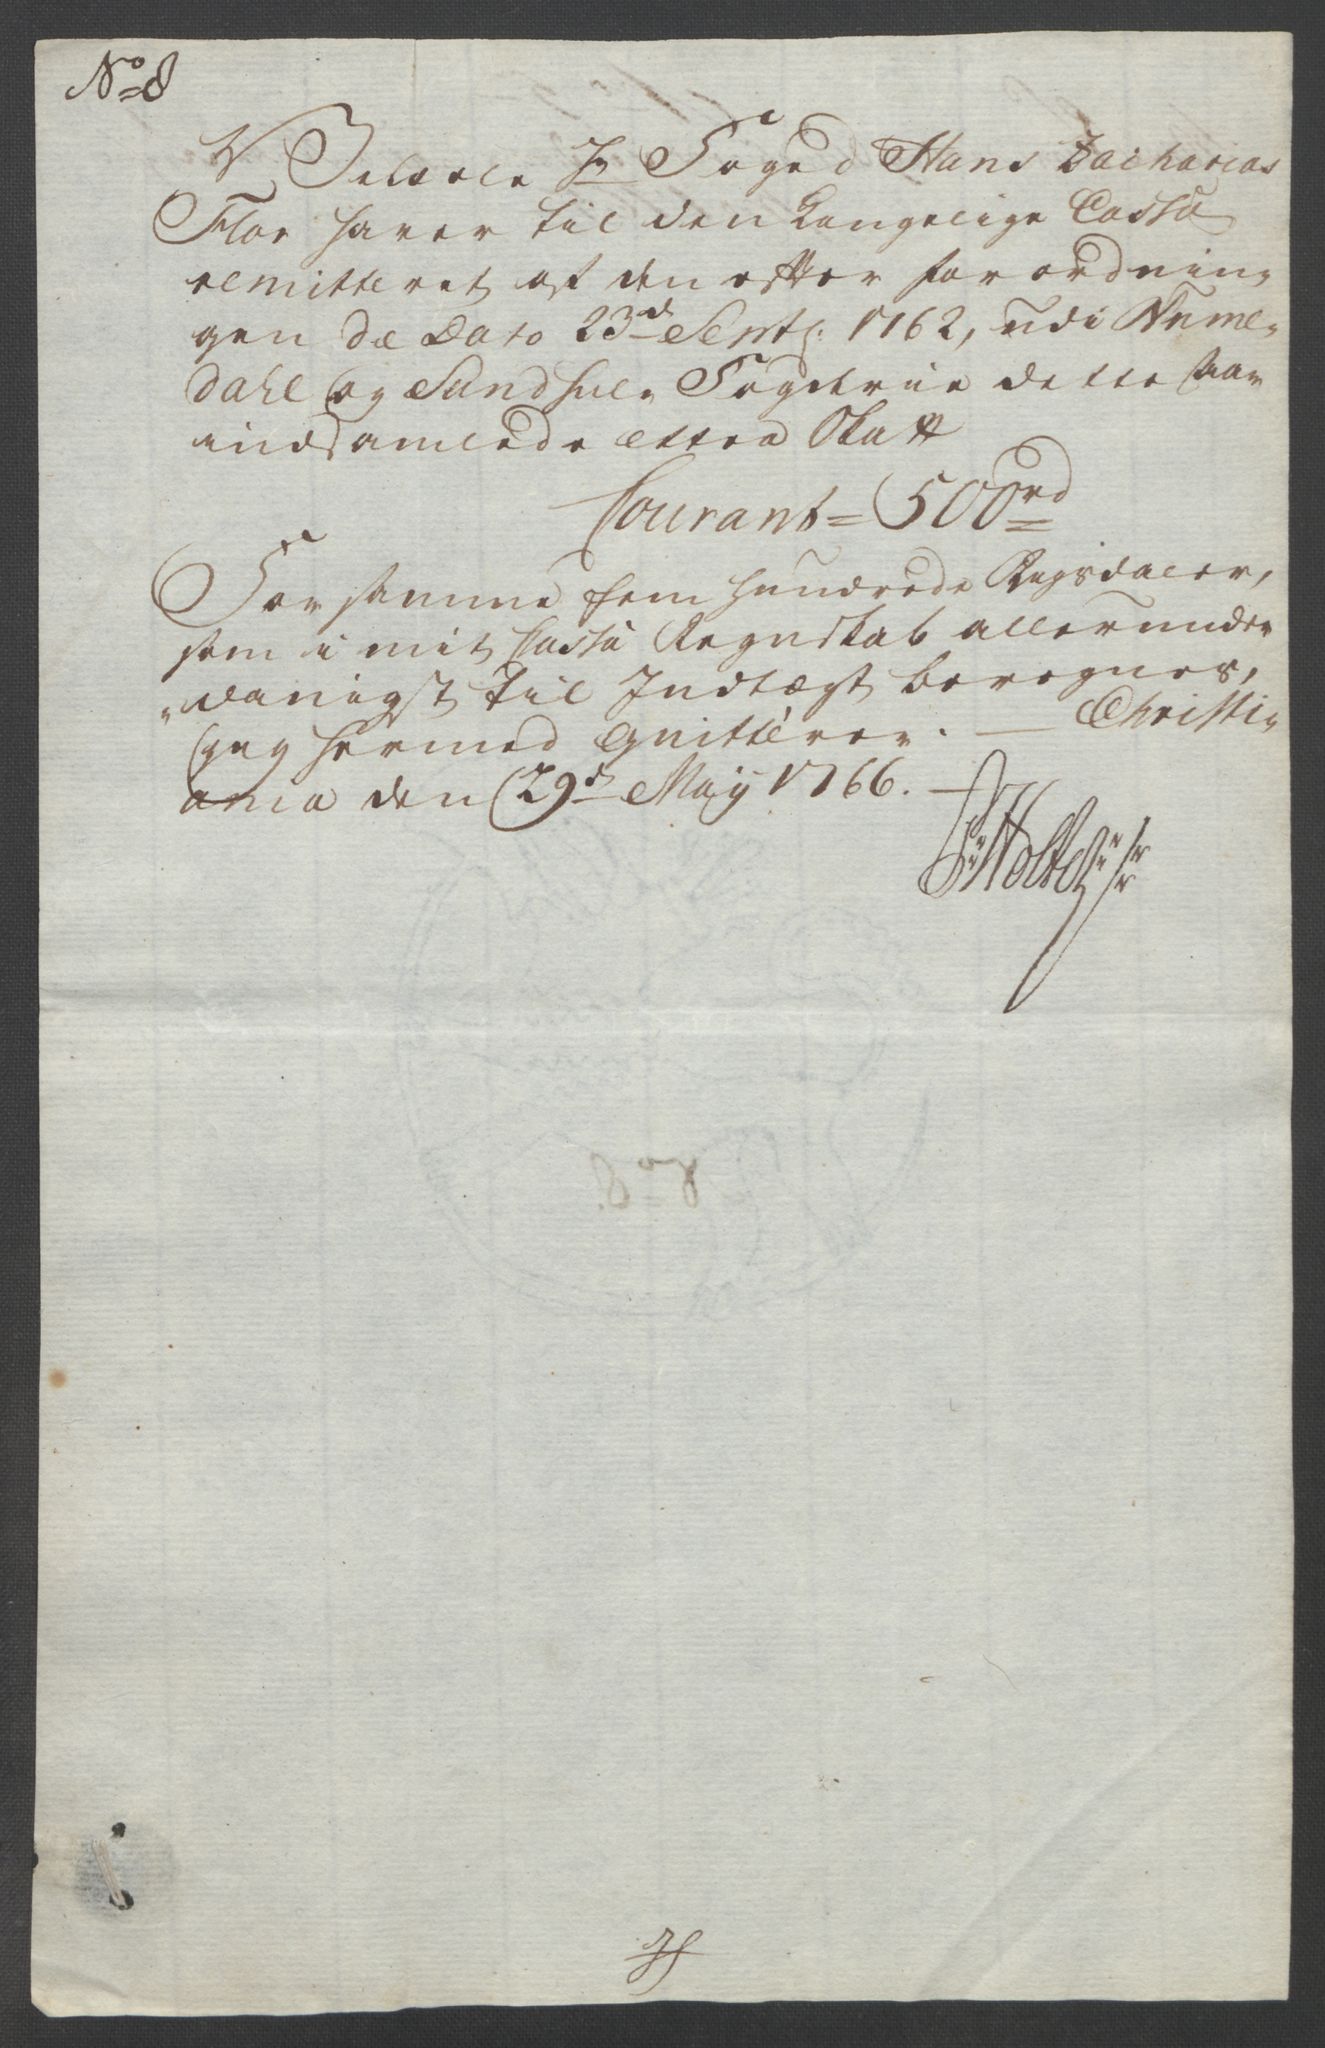 No 8
Velædle Hr Foged Hans Zacharias
Flor haver til den Kongelige Cassa
remitteret af den efter forordnin,
gen de Dato 23d Septbr: 1762, udi Nume,
dahl og Sandsver, Fogderiie dette aar
indsamlede Extra Skatt
Courant = 500rd
For samme fem hundrede Rigsdaler,
som i mit Cassa Regnskab allerunder
„danigst til Indtægt beregnes,
jeg hermed qvitterer. — Christi,
ania den 29d May 1766. —
P: Holte
No 8